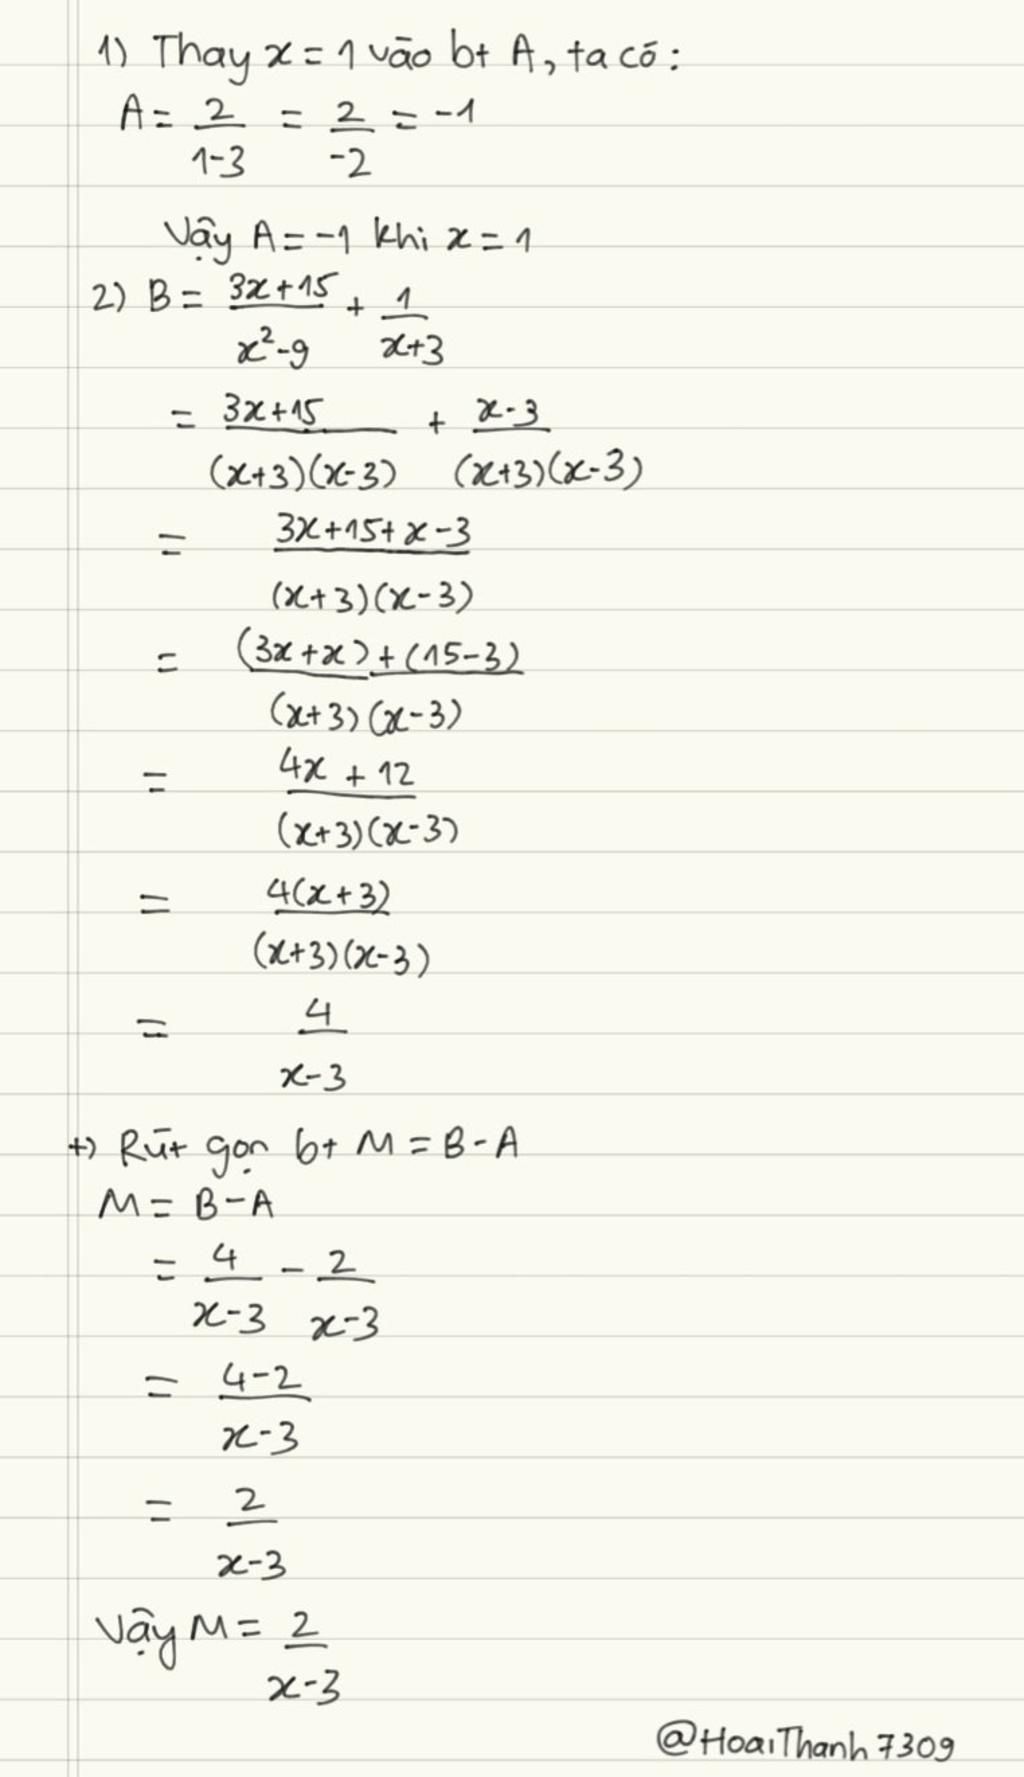 1) Thay x = 1 vào bt A, ta có:
A = 2/(1-3) = 2/-2 = -1
Vậy A = -1 khi x = 1
2) B = (3x+15)/(x²-9) + 1/(x+3)
= (3x+15)/((x+3)(x-3)) + (x-3)/((x+3)(x-3))
= (3x+15+x-3)/((x+3)(x-3))
= ((3x+x)+(15-3))/((x+3)(x-3))
= (4x+12)/((x+3)(x-3))
= 4(x+3)/((x+3)(x-3))
= 4/(x-3)
+) Rút gọn bt M = B - A
M = B - A
= 4/(x-3) - 2/(x-3)
= (4-2)/(x-3)
= 2/(x-3)
Vậy M = 2/(x-3)
@HoaiThanh7309